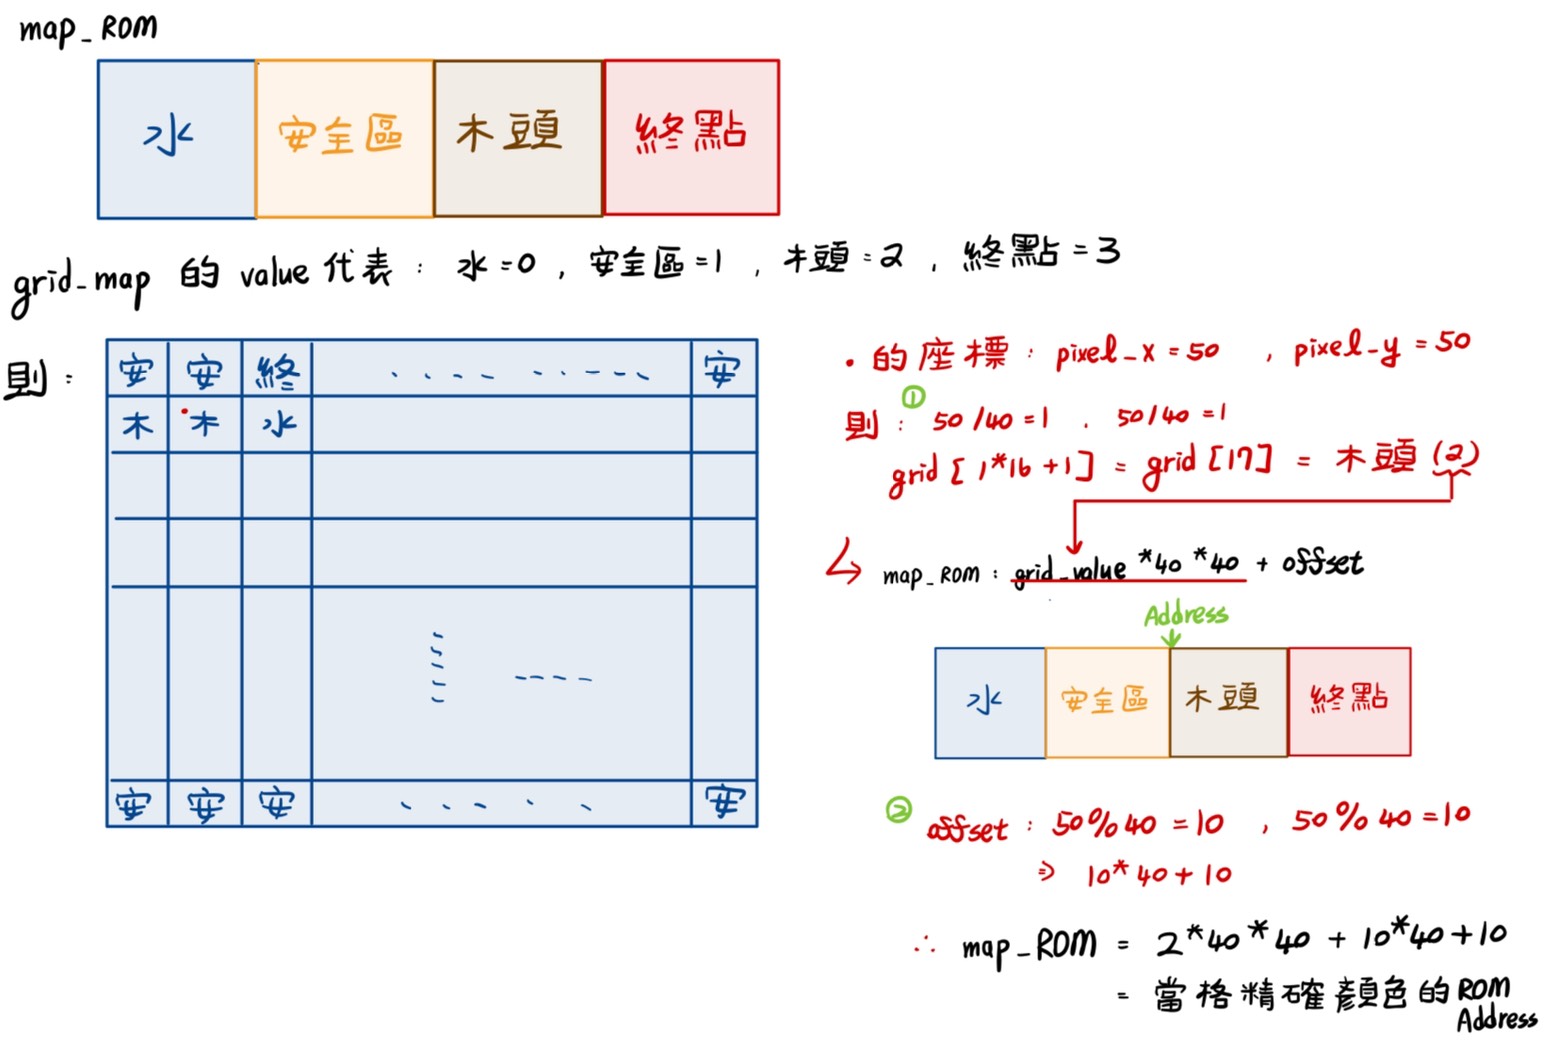 map_ROM
水 安全區 木頭 終點
grid_map 的 value 代表 : 水=0 , 安全區=1 , 木頭=2 , 終點=3
則 :
安 安 終 安
木 木 水
安 安 安 安
• 的座標 : pixel_x = 50 , pixel_y = 50
①
則 : 50/40=1 . 50/40=1
grid [ 1*16 +1 ] = grid [17] = 木頭 (2)
map_ROM : grid_value *40 *40 + offset
Address
水 安全區 木頭 終點
② offset : 50%40 =10 , 50%40=10
⇒ 10*40+10
∴ map_ROM = 2*40*40 + 10*40+10
= 當格精確顏色的ROM
Address